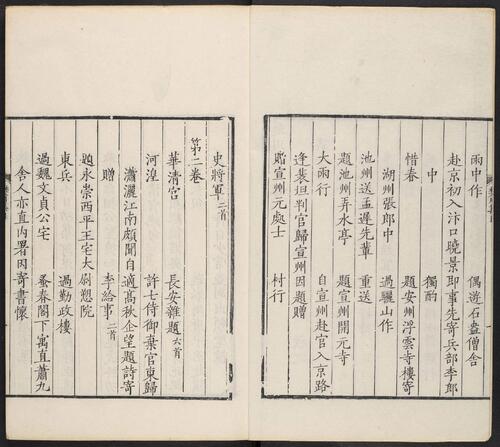 雨中作 偶遊石盎僧舍
赴京初入汴口曉景即事先寄兵部李郎
中 獨酌
惜春 題安州浮雲寺樓寄
湖州張郎中 過驪山作
池州送孟遲先輩 重送
題池州弄水亭 題宣州開元寺
大雨行 自宣州赴官入京路
逢裴坦判官歸宣州因題贈
贈宣州元處士 村行
史將軍二首
第二卷
華清宮 長安雜題六首
河湟 許七侍御棄官東歸
瀟灑江南頗聞自適高秋企望題詩寄
贈 李給事二首
題永崇西平王宅大尉愬院
東兵 過勤政樓
過魏文貞公宅 蚤春閣下寓直蕭九
舍人亦直內署因寄書懷